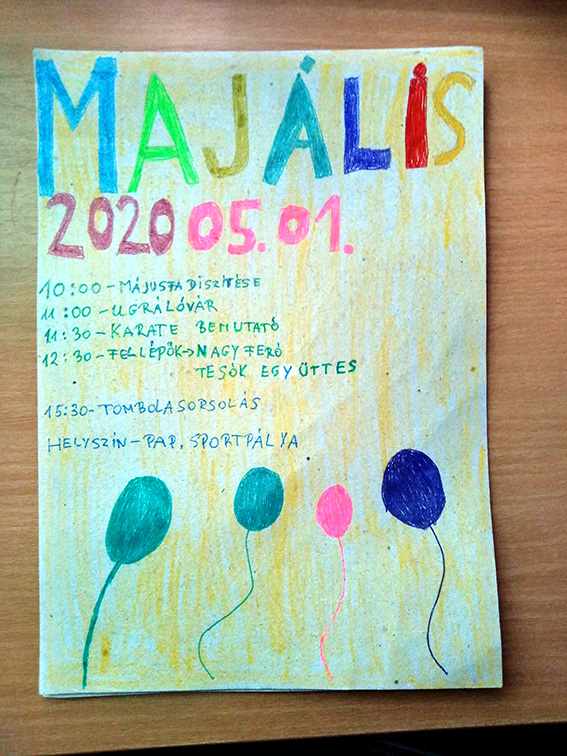 MAJÁLIS
2020 05.01.
10:00-MÁJUSFA DÍSZÍTÉSE
11:00-UGRÁLÓVÁR
11:30-KARATE BEMUTATÓ
12:30-FELLÉPŐK→NAGY FERÓ
TESÓK EGYÜTTES
15:30-TOMBOLASORSOLÁS
HELYSZÍN-PAP, SPORTPÁLYA